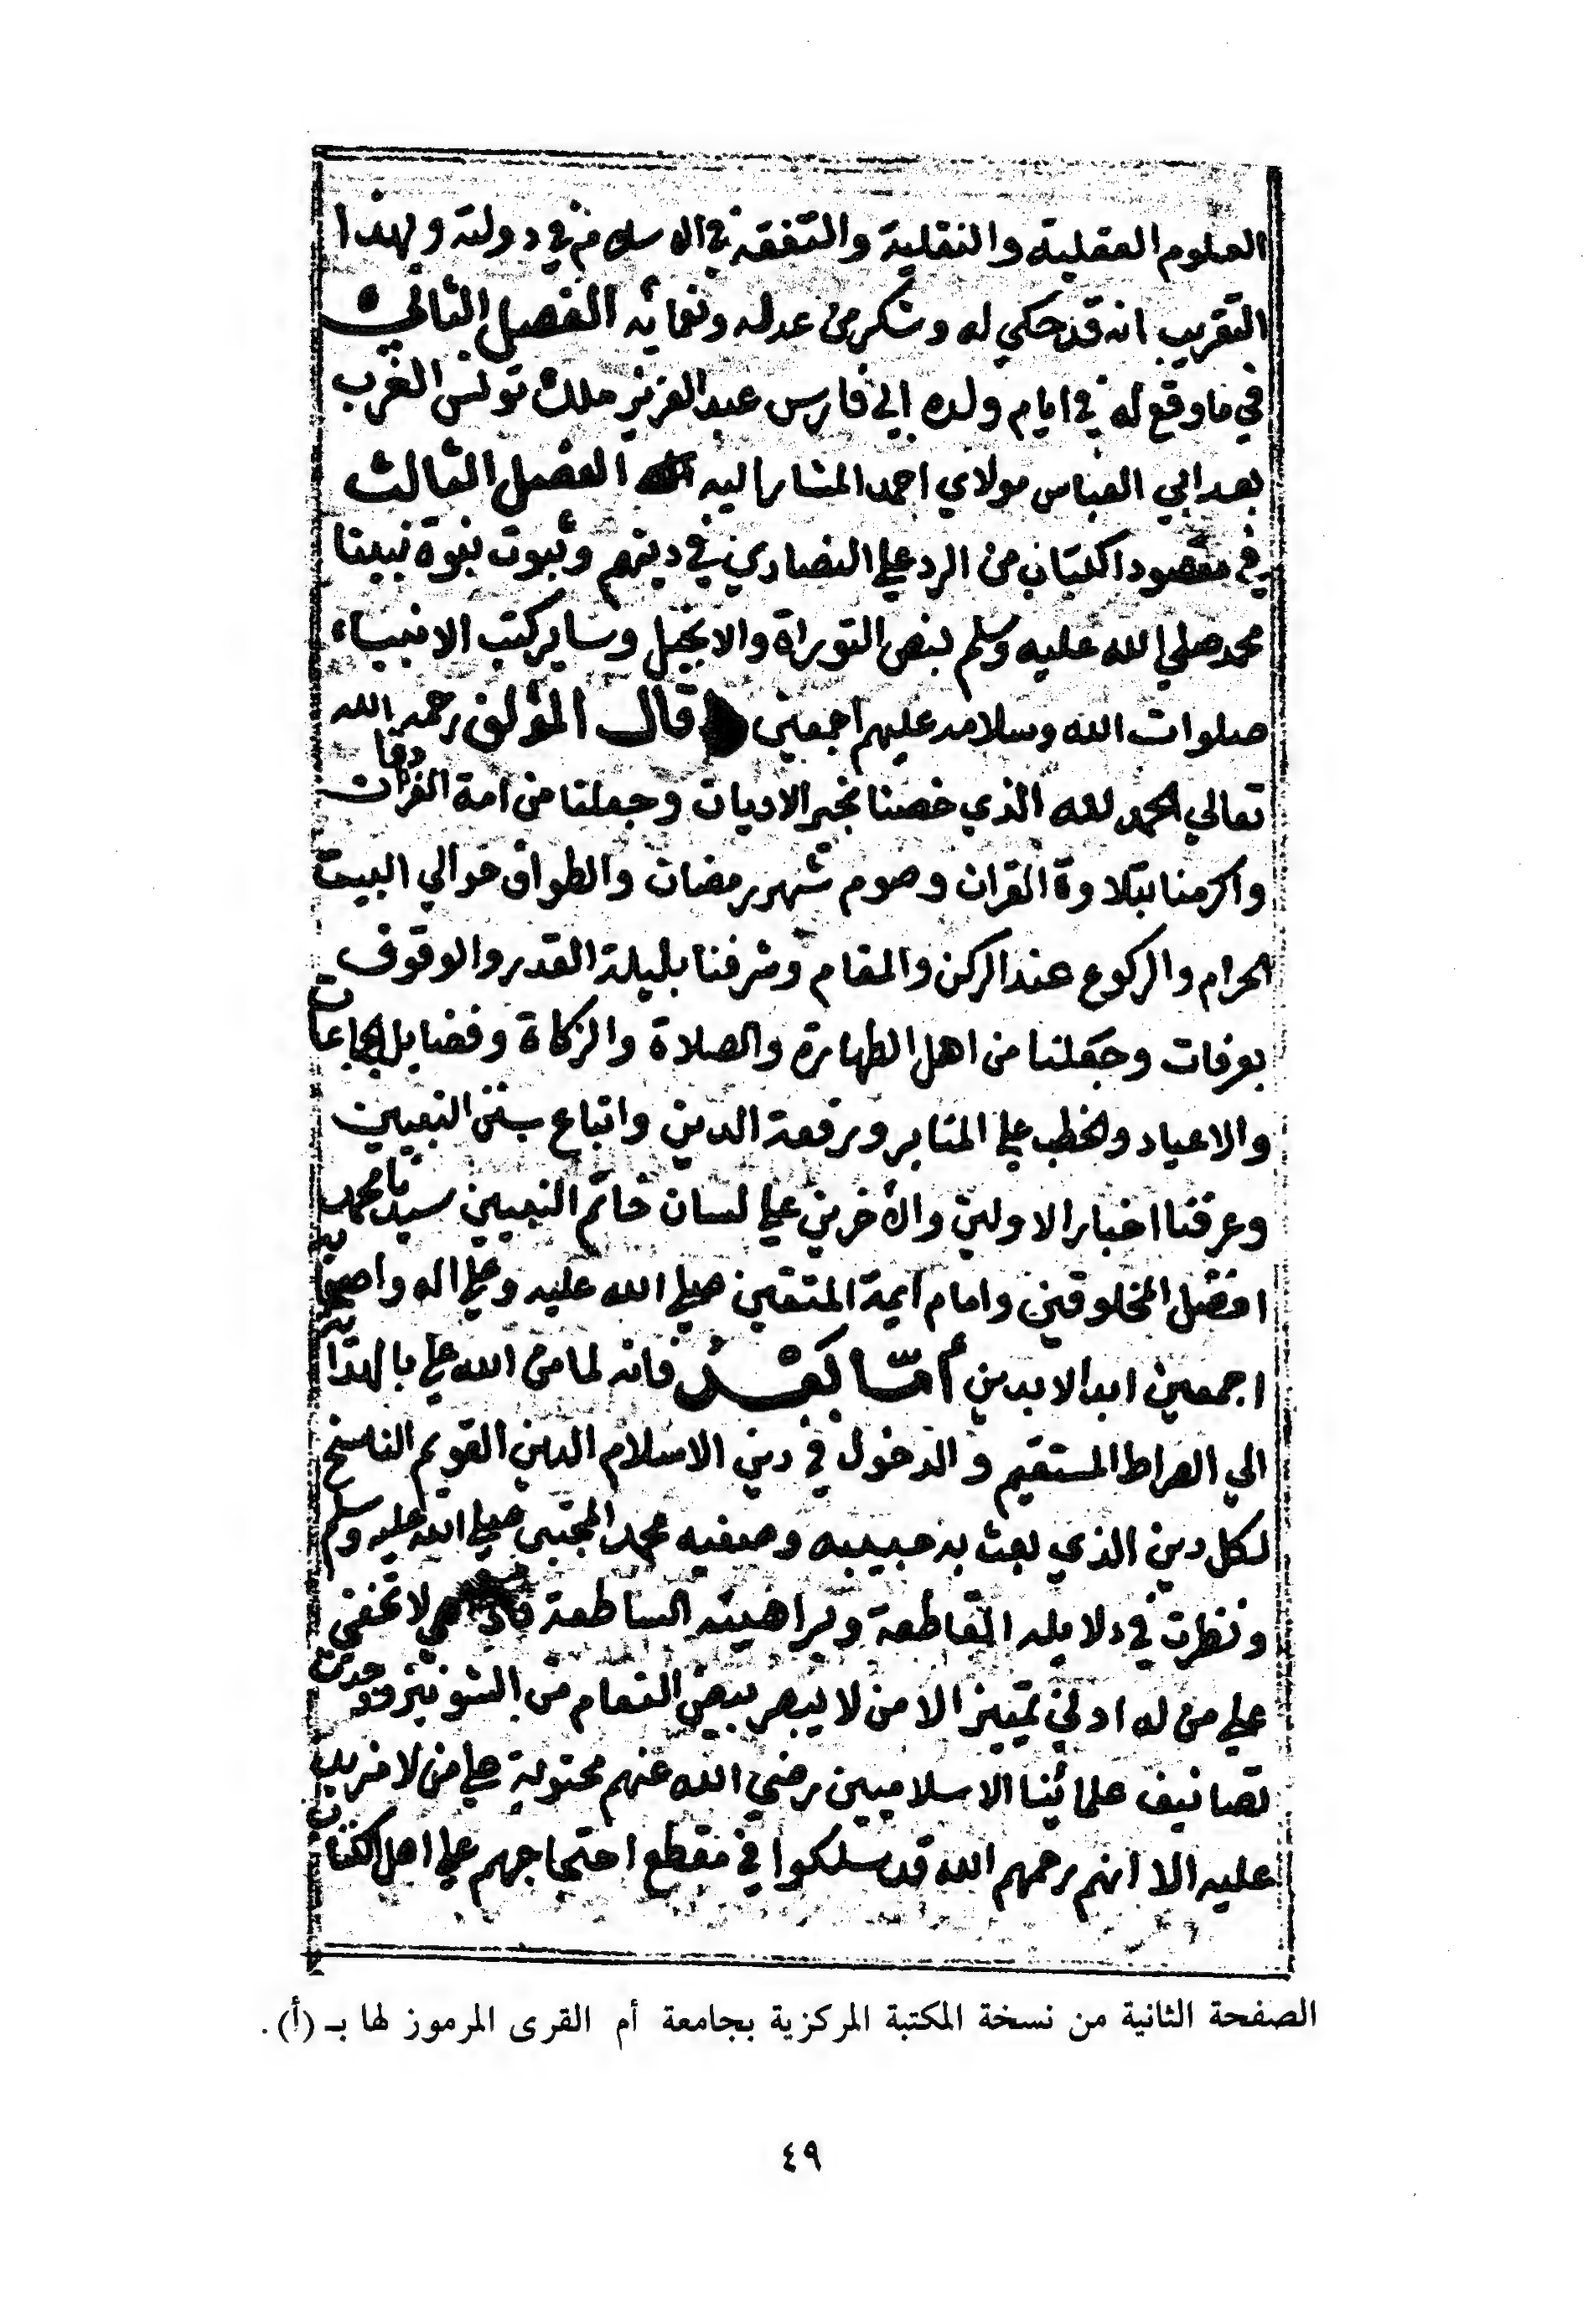 العلوم العقلية والنقلية والتفقه في الاسلام في دولته وبهذا
التقريب انه قد حكي له وشكر من عدله ونعمائه الفصل الثاني
في ما وقع له في ايام ولده ابي فارس عبد العزيز ملك تونس الغرب
بعد ابي العباس مولاي احمد المشار اليه الفصل الثالث
في مقصود الكتاب من الرد علي النصاري في دينهم وثبوت نبوة نبينا
محمد صلي الله عليه وسلم بنص التوراة والانجيل وساير كتب الانبياء
صلوات الله وسلامه عليهم اجمعين قال المؤلف رحمه الله
تعالي الحمد لله الذي خصنا بخير الاديان وجعلنا من امة
واكرمنا بتلاوة القران وصوم شهر رمضان والطواف حوالي البيت
الحرام والركوع عند الركن والمقام وشرفنا بليلة القدر والوقوف
بعرفات وجعلنا من اهل الطهارة والصلاة والزكاة وفضايل الجماعات
والاعياد والخطب علي المنابر ورفعة الدين واتباع سنن النبيين
وعرفنا اخبار الاولين والأخرين علي لسان خاتم النبيين سيدنا محمد
افضل المخلوقين وامام ايمة المتقين صلي الله عليه وعلي اله واصحابه
اجمعين ابد الابدين أمّا بَعْدُ فانه لما من الله علي بالهداية
الي الصراط المستقيم والدخول في دين الاسلام الدين القويم الناسخ
لكل دين الذي بعث به حبيبه وصفيه محمد المجتبي صلي الله عليه وسلم
ونظرت في دلايله القاطعة وبراهينه الساطعة هي لا تخفي
علي من له ادني تمييز الا من لا يبصر بيض النعام من الشونيز ووجدت
تصانيف علمائنا الاسلاميين رضي الله عنهم محتوية علي من لا مزيد
عليه الا انهم رحمهم الله قد سلكوا في مقطع احتجاجهم علي اهل الكتاب
الصفحة الثانية من نسخة المكتبة المركزية بجامعة أم القرى المرموز لها بـ (أ).
٤٩